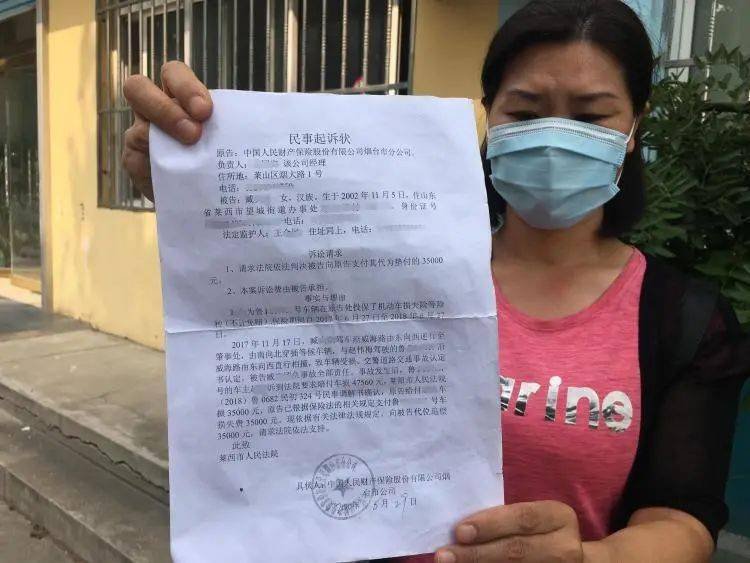 民事起诉状
原告:中国人民财产保险股份有限公司烟台市分公司。
负责人: 该公司经理
住所地:莱山区烟大路1号
电话:
被告:臧 女,汉族,生于2002年11月5日,住山东
省莱西市望城街道办事处 身份证号
法定监护人:王 住址同上,电话:
诉讼请求
1、请求法院依法判决被告向原告支付其代为垫付的35000
元。
2、本案诉讼费由被告承担。
事实与理由
号车辆在原告处投保了机动车损失险等险
种(不计免赔)保险期间自2017年6月27日至2018年6月27
2017年11月17日,臧 驾车顺威海路由东向西逆行至
肇事处,由南向北穿插等候车辆,与赵 驾驶的鲁 沿
威海路由东向西直行相撞,致车辆受损。交警道路交通事故认定
书认定,被告臧 负事故全部责任。事故发生后,鲁
号的车主 诉到法院要求赔付车损47560元,莱阳市人民法院
(2018)鲁0682民初324号民事调解书确认,原告给付 车
损35000元,原告已根据保险法的相关规定支付鲁 号车
损失费35000元。现依据有关法律法规规定,向被告代位追偿
35000元,请求法院依法支持。
此致
莱西市人民法院
具状人:中国人民财产保险股份有限公司烟
台市分公司
5月29日
arine